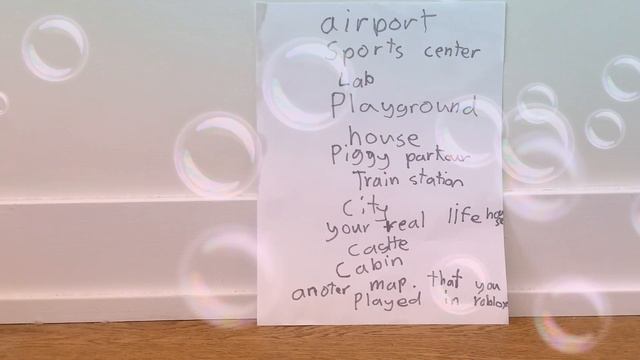 airport
Sports center
Lab
Playground
house
Piggy parkour
Train station
City
your real life house
Castle
Cabin
anoter map. that you
played in roblox